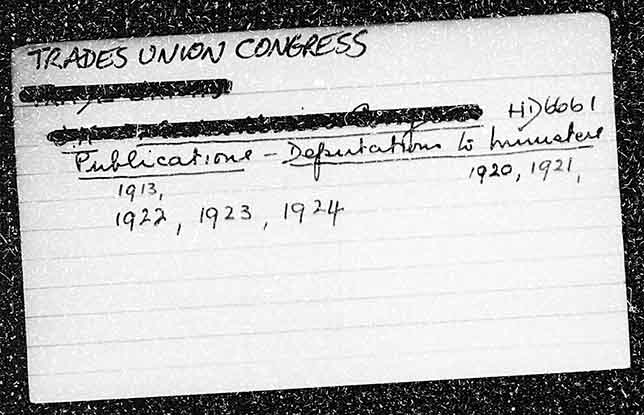 TRADES UNION CONGRESS
HD6661
Publications - Deputations to Ministers
1913, 1920, 1921,
1922, 1923, 1924